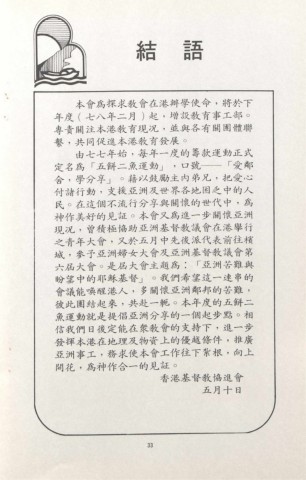 結語
本會為探求教會在港辦學使命，將於下
年度（七八年二月）起，增設教育事工部。
專責關注本港教育現況，並與各有關團體聯
繫，共同促進本港教育發展。
由七七年始，每年一度的籌款運動正式
定名為「五餅二魚運動」，口號——「愛鄰
舍，學分享」。藉以鼓勵主內弟兄，把愛心
付諸行動，支援亞洲及世界各地困乏中的人
民。在這個不流行分享與關懷的世代中，為
神作美好的見証。本會又為進一步關懷亞洲
現況，曾積極協助亞洲基督教議會在港舉行
之青年大會，又於五月中先後派代表前往檳
城，參予亞洲婦女大會及亞洲基督教議會第
六屆大會。是屆大會主題為：「亞洲苦難與
盼望中的耶穌基督」。我們希望這一連串的
會議能喚醒港人，多關懷亞洲鄰邦的苦難，
彼此團結起來，共赴一軛。本年度的五餅二
魚運動就是提倡亞洲分享的一個起步點。相
信我們日後定能在衆教會的支持下，進一步
發揮本港在地理及物資上的優越條件，推廣
亞洲事工，務求使本會工作往下紮根，向上
開花，為神作合一的見証。
香港基督教協進會
五月十日
33